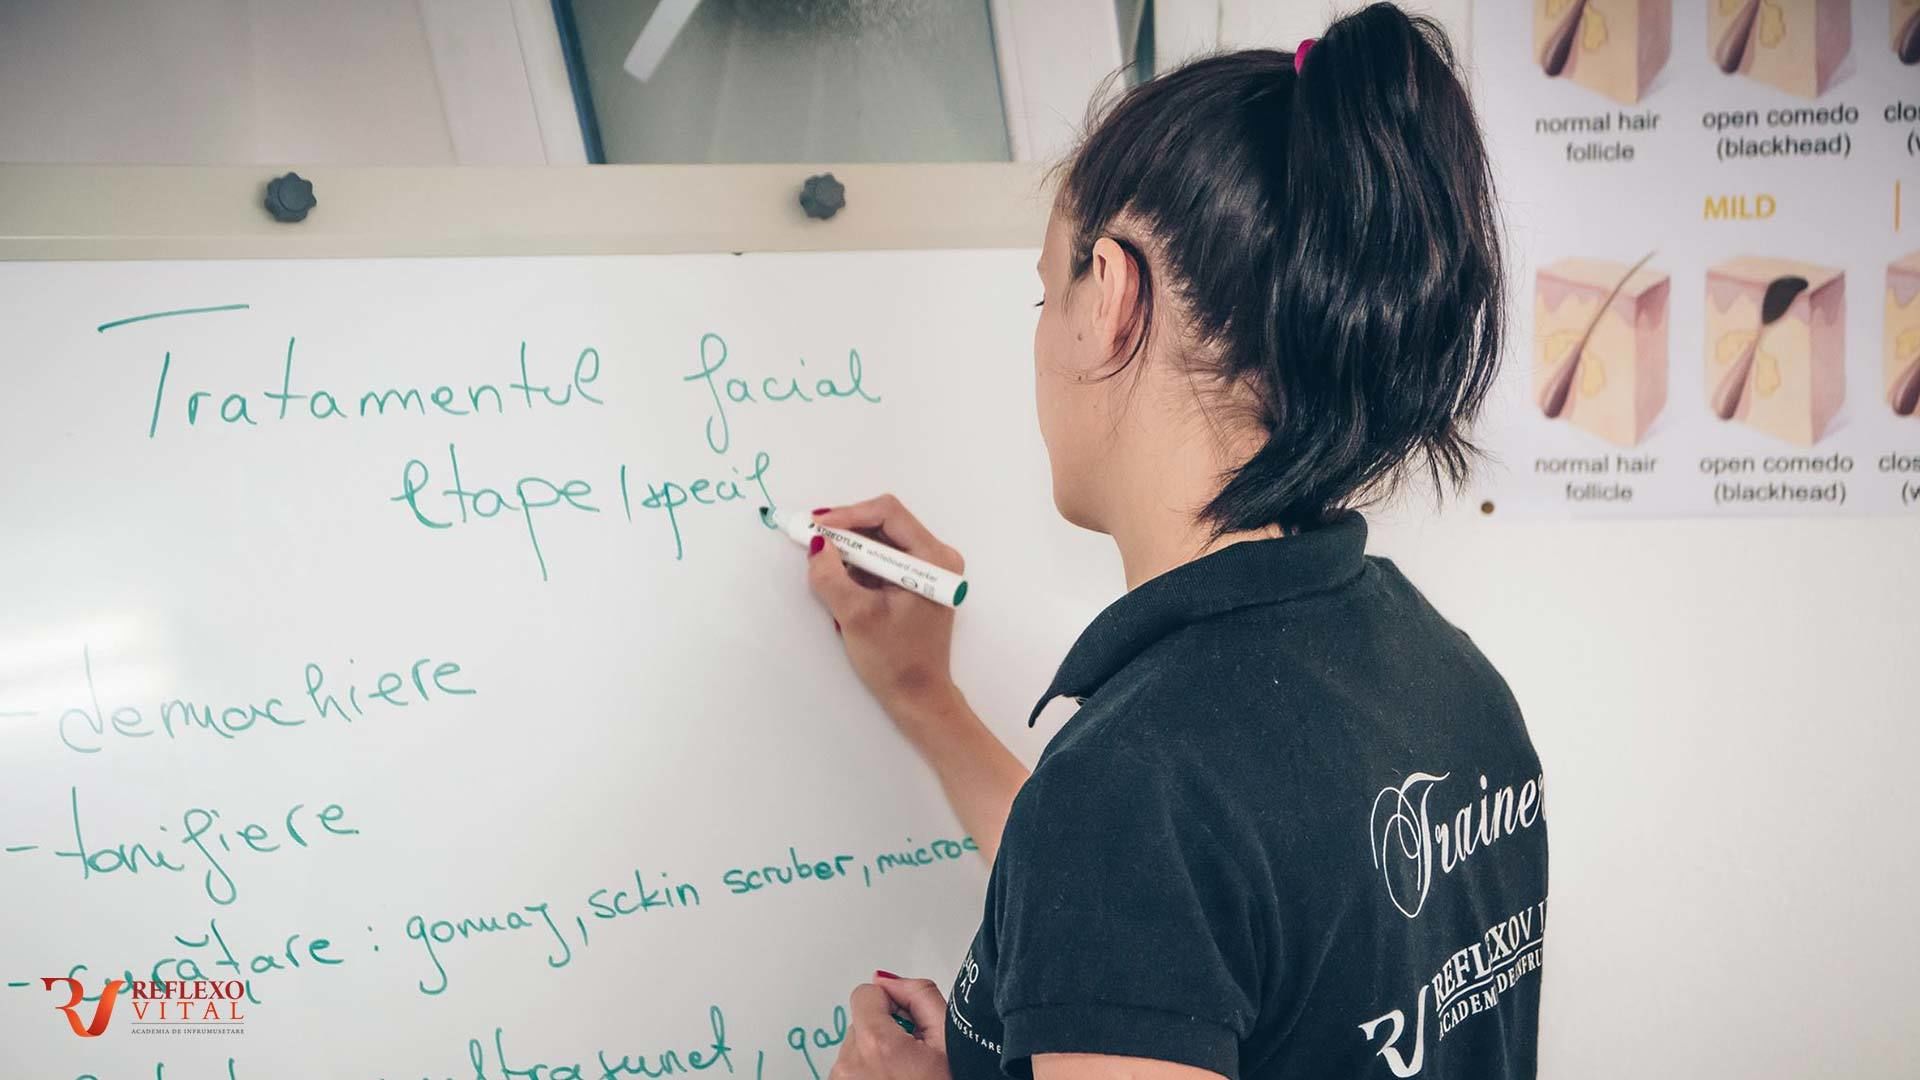 Tratamentul facial
etape/specif
- demachiere
- tonifiere
- curățare: gomaj, sckin scruber, microd
ultrasunet, gal
normal hair
follicle
open comedo
(blackhead)
clos
(w
MILD
normal hair
follicle
open comedo
(blackhead)
clos
(w
STAEDTLER whiteboard marker
Trainer
REFLEXOV
ACADEM DE INFRU
XO
TAL
MUSETARE
REFLEXO
VITAL
ACADEMIA DE INFRUMUSETARE